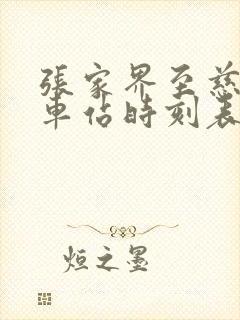 張家界至慈
車佔時刻表
烜之墨